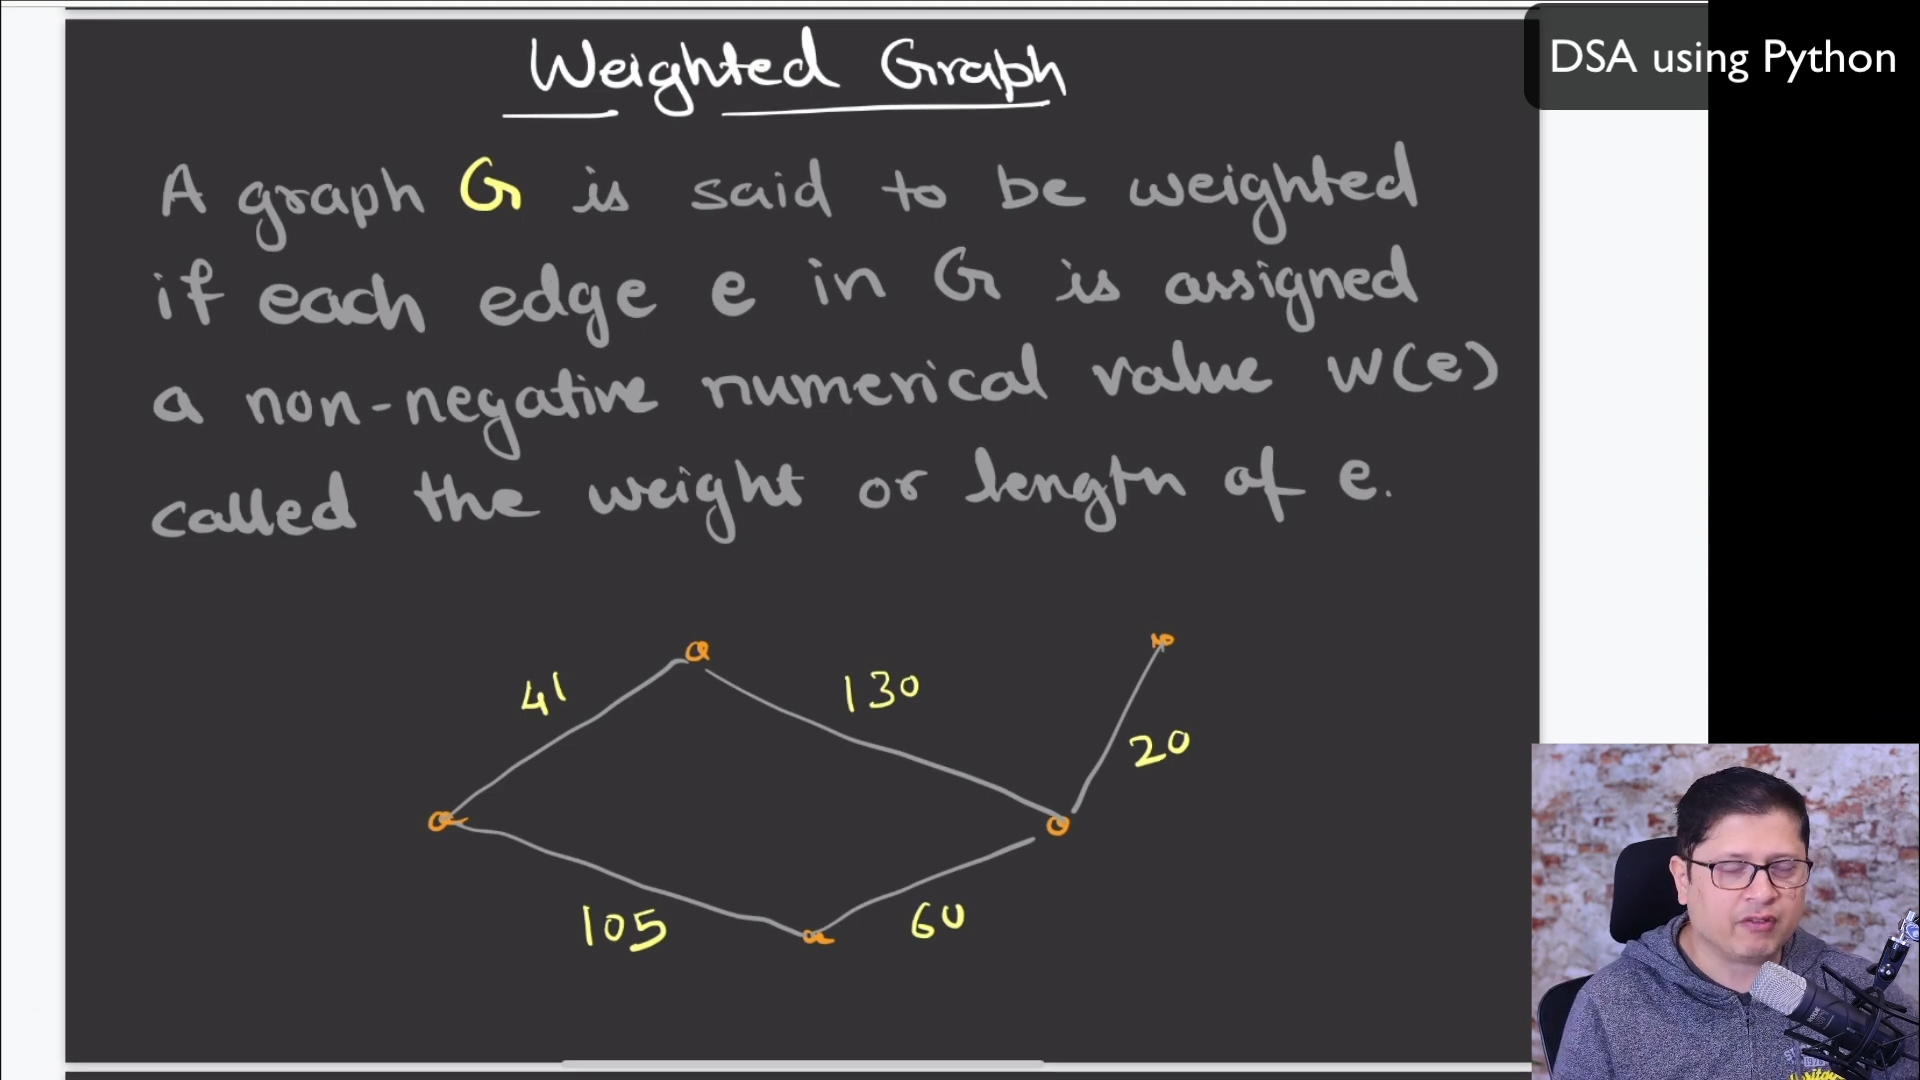 Weighted Graph
DSA using Python
A graph G is said to be weighted
if each edge e in G is assigned
a non-negative numerical value W(e)
called the weight or length of e.
41
130
20
105
60